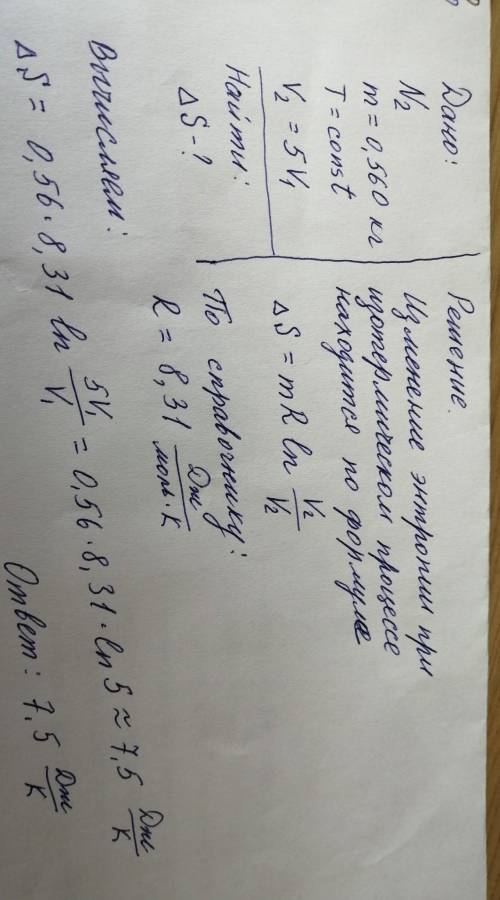 Дано:
N₂
m = 0,560 кг
T = const
V₂ = 5V₁
Найти:
ΔS - ?
Решение.
Изменение энтропии при
изотермическом процессе
находится по формуле
ΔS = mR ln V₂/V₂
По справочнику:
R = 8,31 Дж/моль·К
Вычисляем:
ΔS = 0,56·8,31 ln 5V₁/V₁ = 0,56·8,31·ln5 ≈ 7,5 Дж/К
Ответ: 7.5 Дж/К